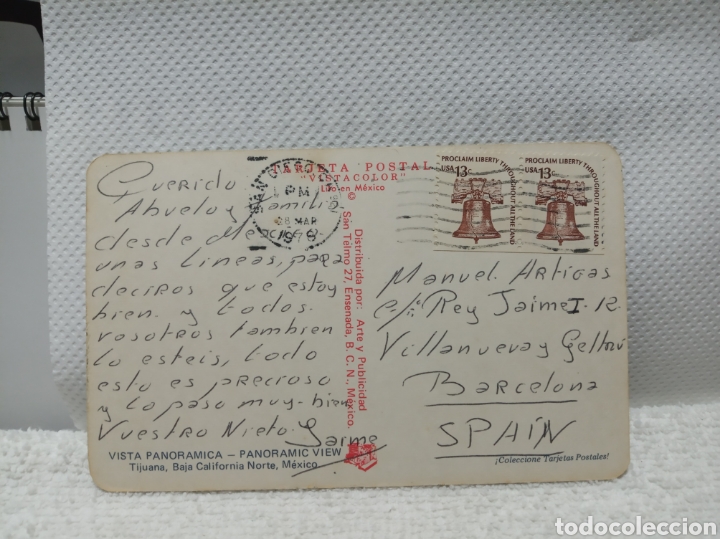 TARJETA POSTAL
"VISTACOLOR"
Lito en México
©
PROCLAIM LIBERTY THROUGHOUT ALL THE LAND
USA 13c
PROCLAIM LIBERTY THROUGHOUT ALL THE LAND
USA 13c
SAN DIEGO
PM
28 MAR
197
Querido
Abuelo y familia
desde Mexico
unas lineas, para
deciros que estoy
bien y todos
vosotros tambien
lo esteis, todo
esto es precioso
y lo paso muy-bien
Vuestro Nieto Jaime
Distribuida por: Arte y Publicidad
San Telmo 27, Ensenada, B. C. N., México.
Manuel Artigas
c/: Rey Jaime I-12
Villanueva y Geltrú
Barcelona
SPAIN
VISTA PANORAMICA – PANORAMIC VIEW
Tijuana, Baja California Norte, México
¡Coleccione Tarjetas Postales!
todocoleccion